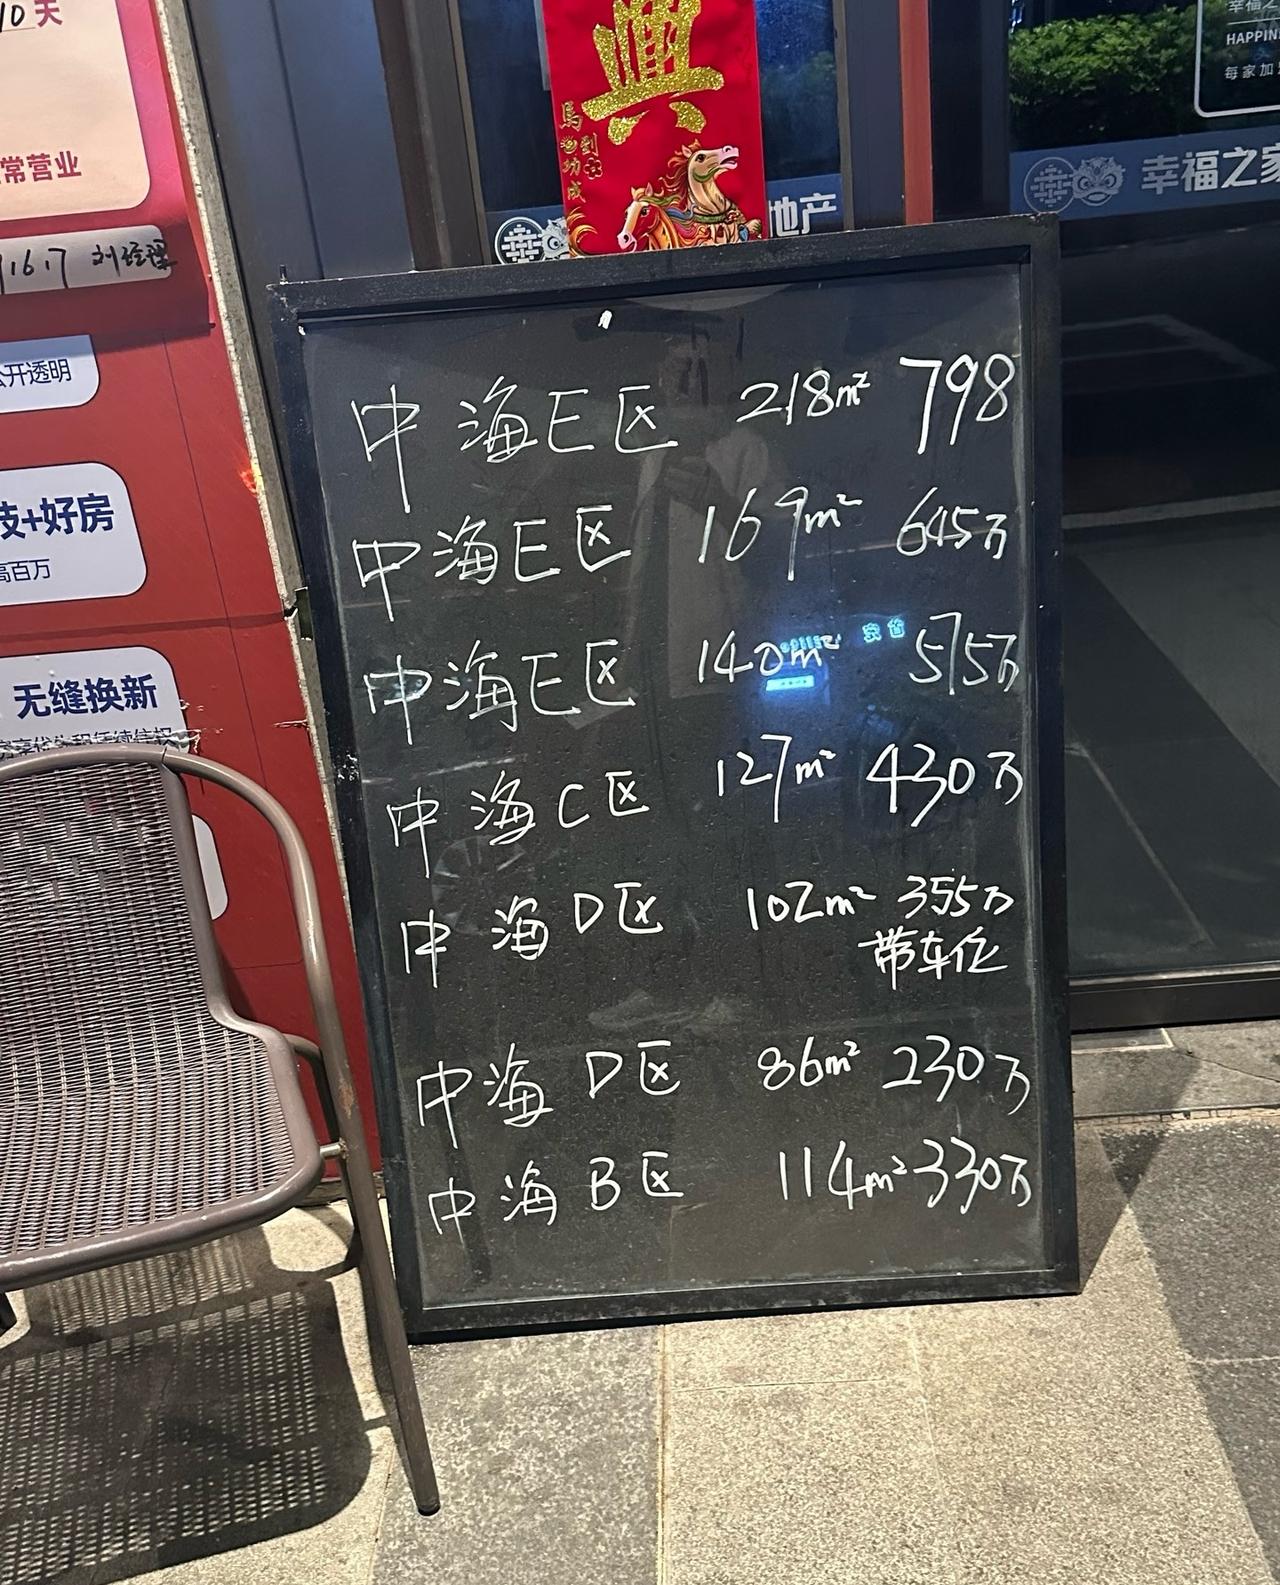 10天
興
馬到功成
常营业
刘经理
公开透明
技+好房
高百万
无缝换新
地产
幸福之家
幸福之
HAPPIN
每家加
中海E区 218m² 798
中海E区 169m² 645万
中海E区 140m² 575万
中海C区 127m² 430万
中海D区 102m² 355万
带车位
中海D区 86m² 230万
中海B区 114m² 330万